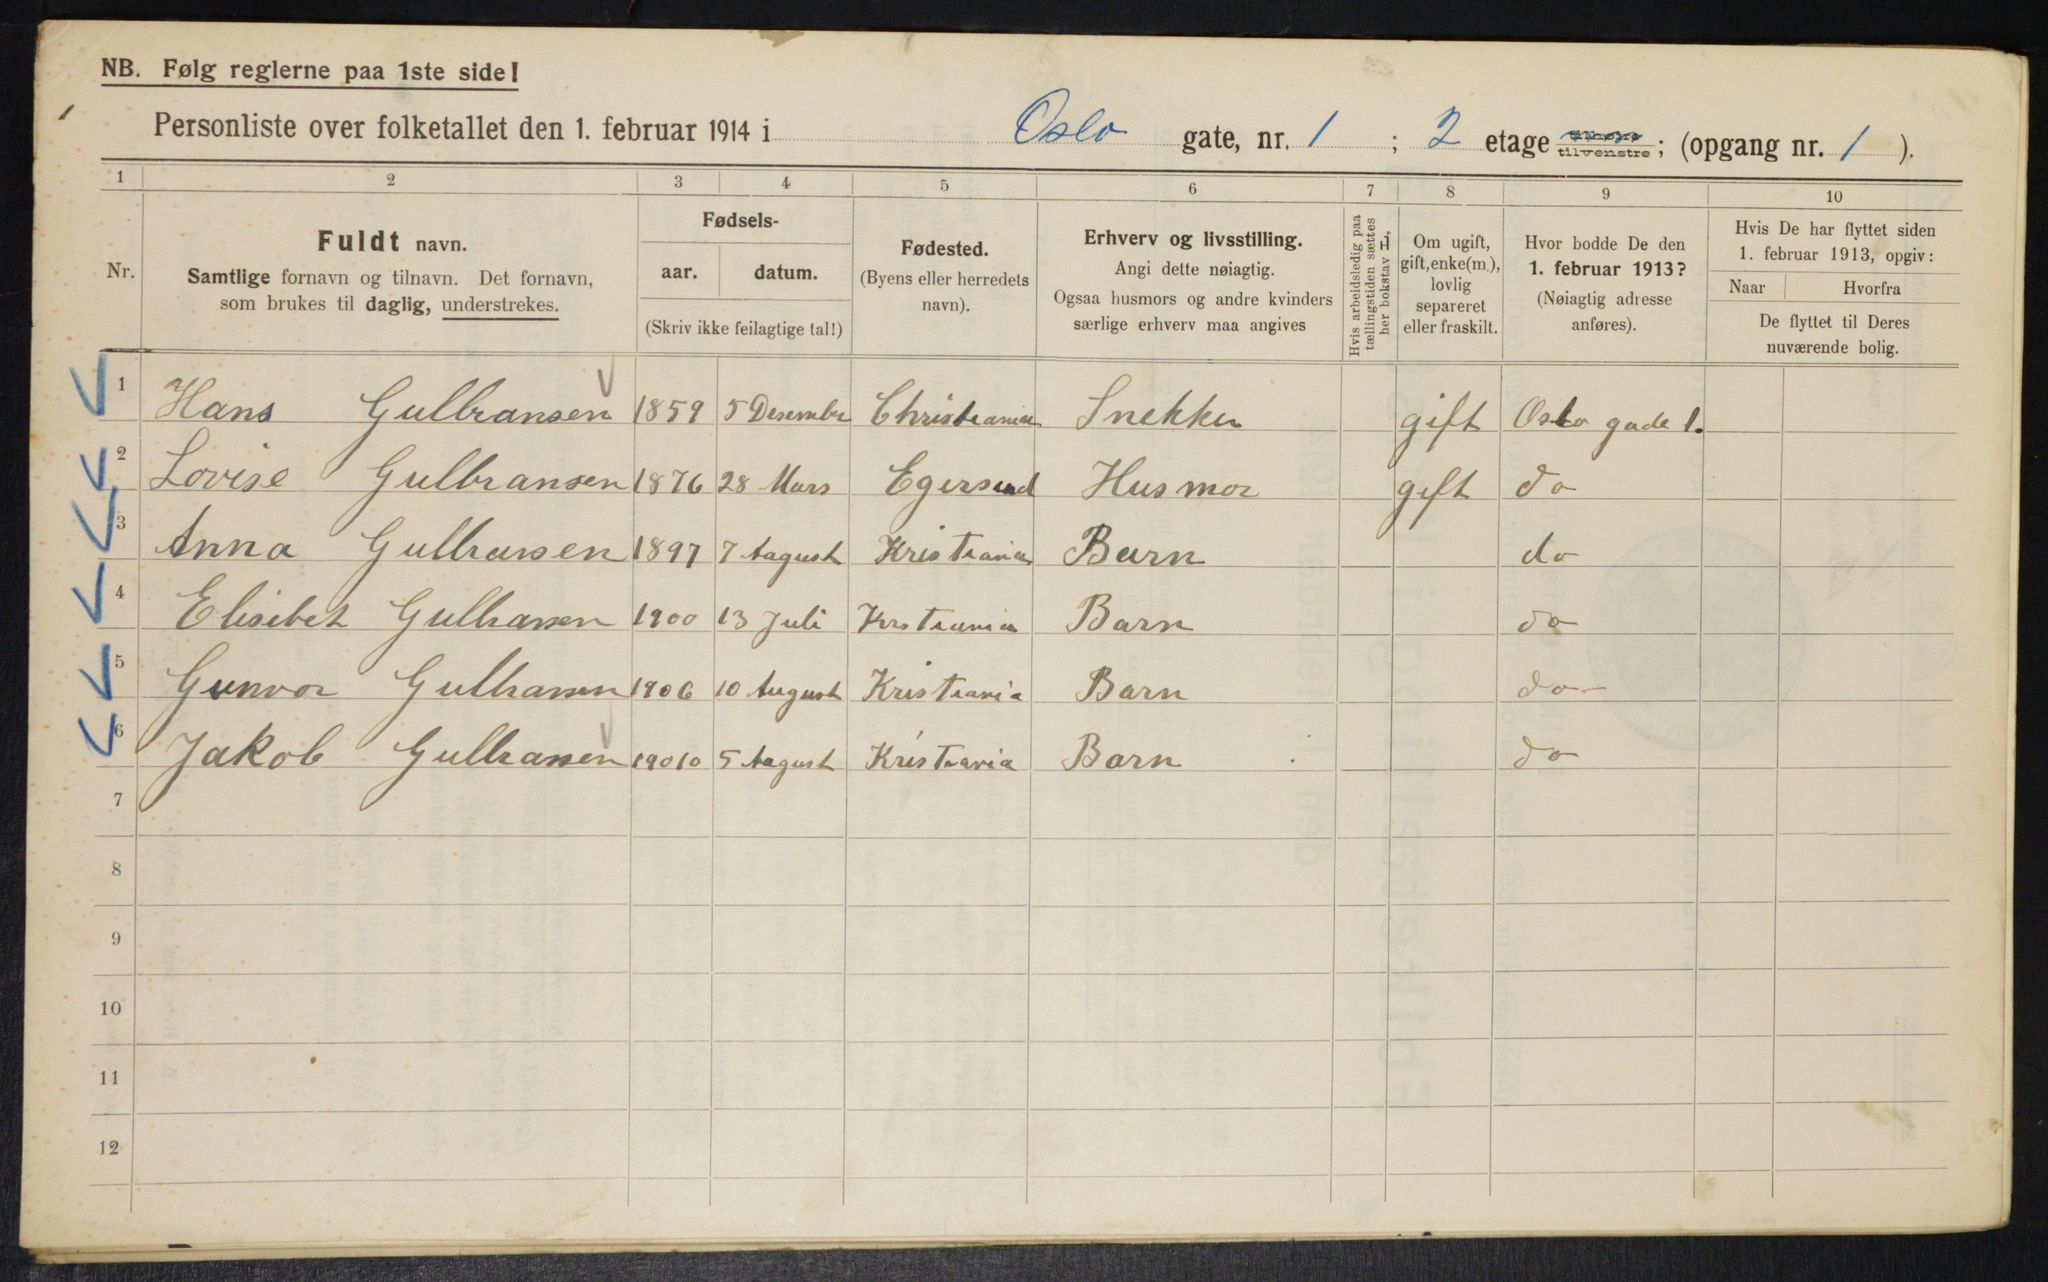 NB. Følg reglerne paa 1ste side!
Personliste over folketallet den 1. februar 1914 i Oslo gate, nr. 1 ; 2 etage tilvenstre; (opgang nr. 1 ).
1 2 3 4 5 6 7 8 9 10
Nr.
Fuldt navn.
Samtlige fornavn og tilnavn. Det fornavn,
som brukes til daglig, understrekes.
Fødsels-
aar. datum.
(Skriv ikke feilagtige tal!)
Fødested.
(Byens eller herredets
navn).
Erhverv og livsstilling.
Angi dette nøiagtig.
Ogsaa husmors og andre kvinders
særlige erhverv maa angives
Hvis arbeidsledig paa
tællingstiden sættes
her bokstav L,
Om ugift,
gift, enke(m.),
lovlig
separeret
eller fraskilt.
Hvor bodde De den
1. februar 1913?
(Nøiagtig adresse
anføres).
Hvis De har flyttet siden
1. februar 1913, opgiv:
Naar Hvorfra
De flyttet til Deres
nuværende bolig.
1 Hans Gulbransen 1859 5 Desember Christiania Snekker gift Oslo gade 1.
2 Lovise Gulbransen 1876 28 Mars Egersund Husmor gift do
3 Anna Gulbransen 1897 7 August Kristiania Barn do
4 Elisibet Gulbransen 1900 13 Juli Kristiania Barn do
5 Gunvor Gulbransen 1906 10 August Kristiania Barn do
6 Jakob Gulbransen 19010 5 August Kristiania Barn do
7
8
9
10
11
12